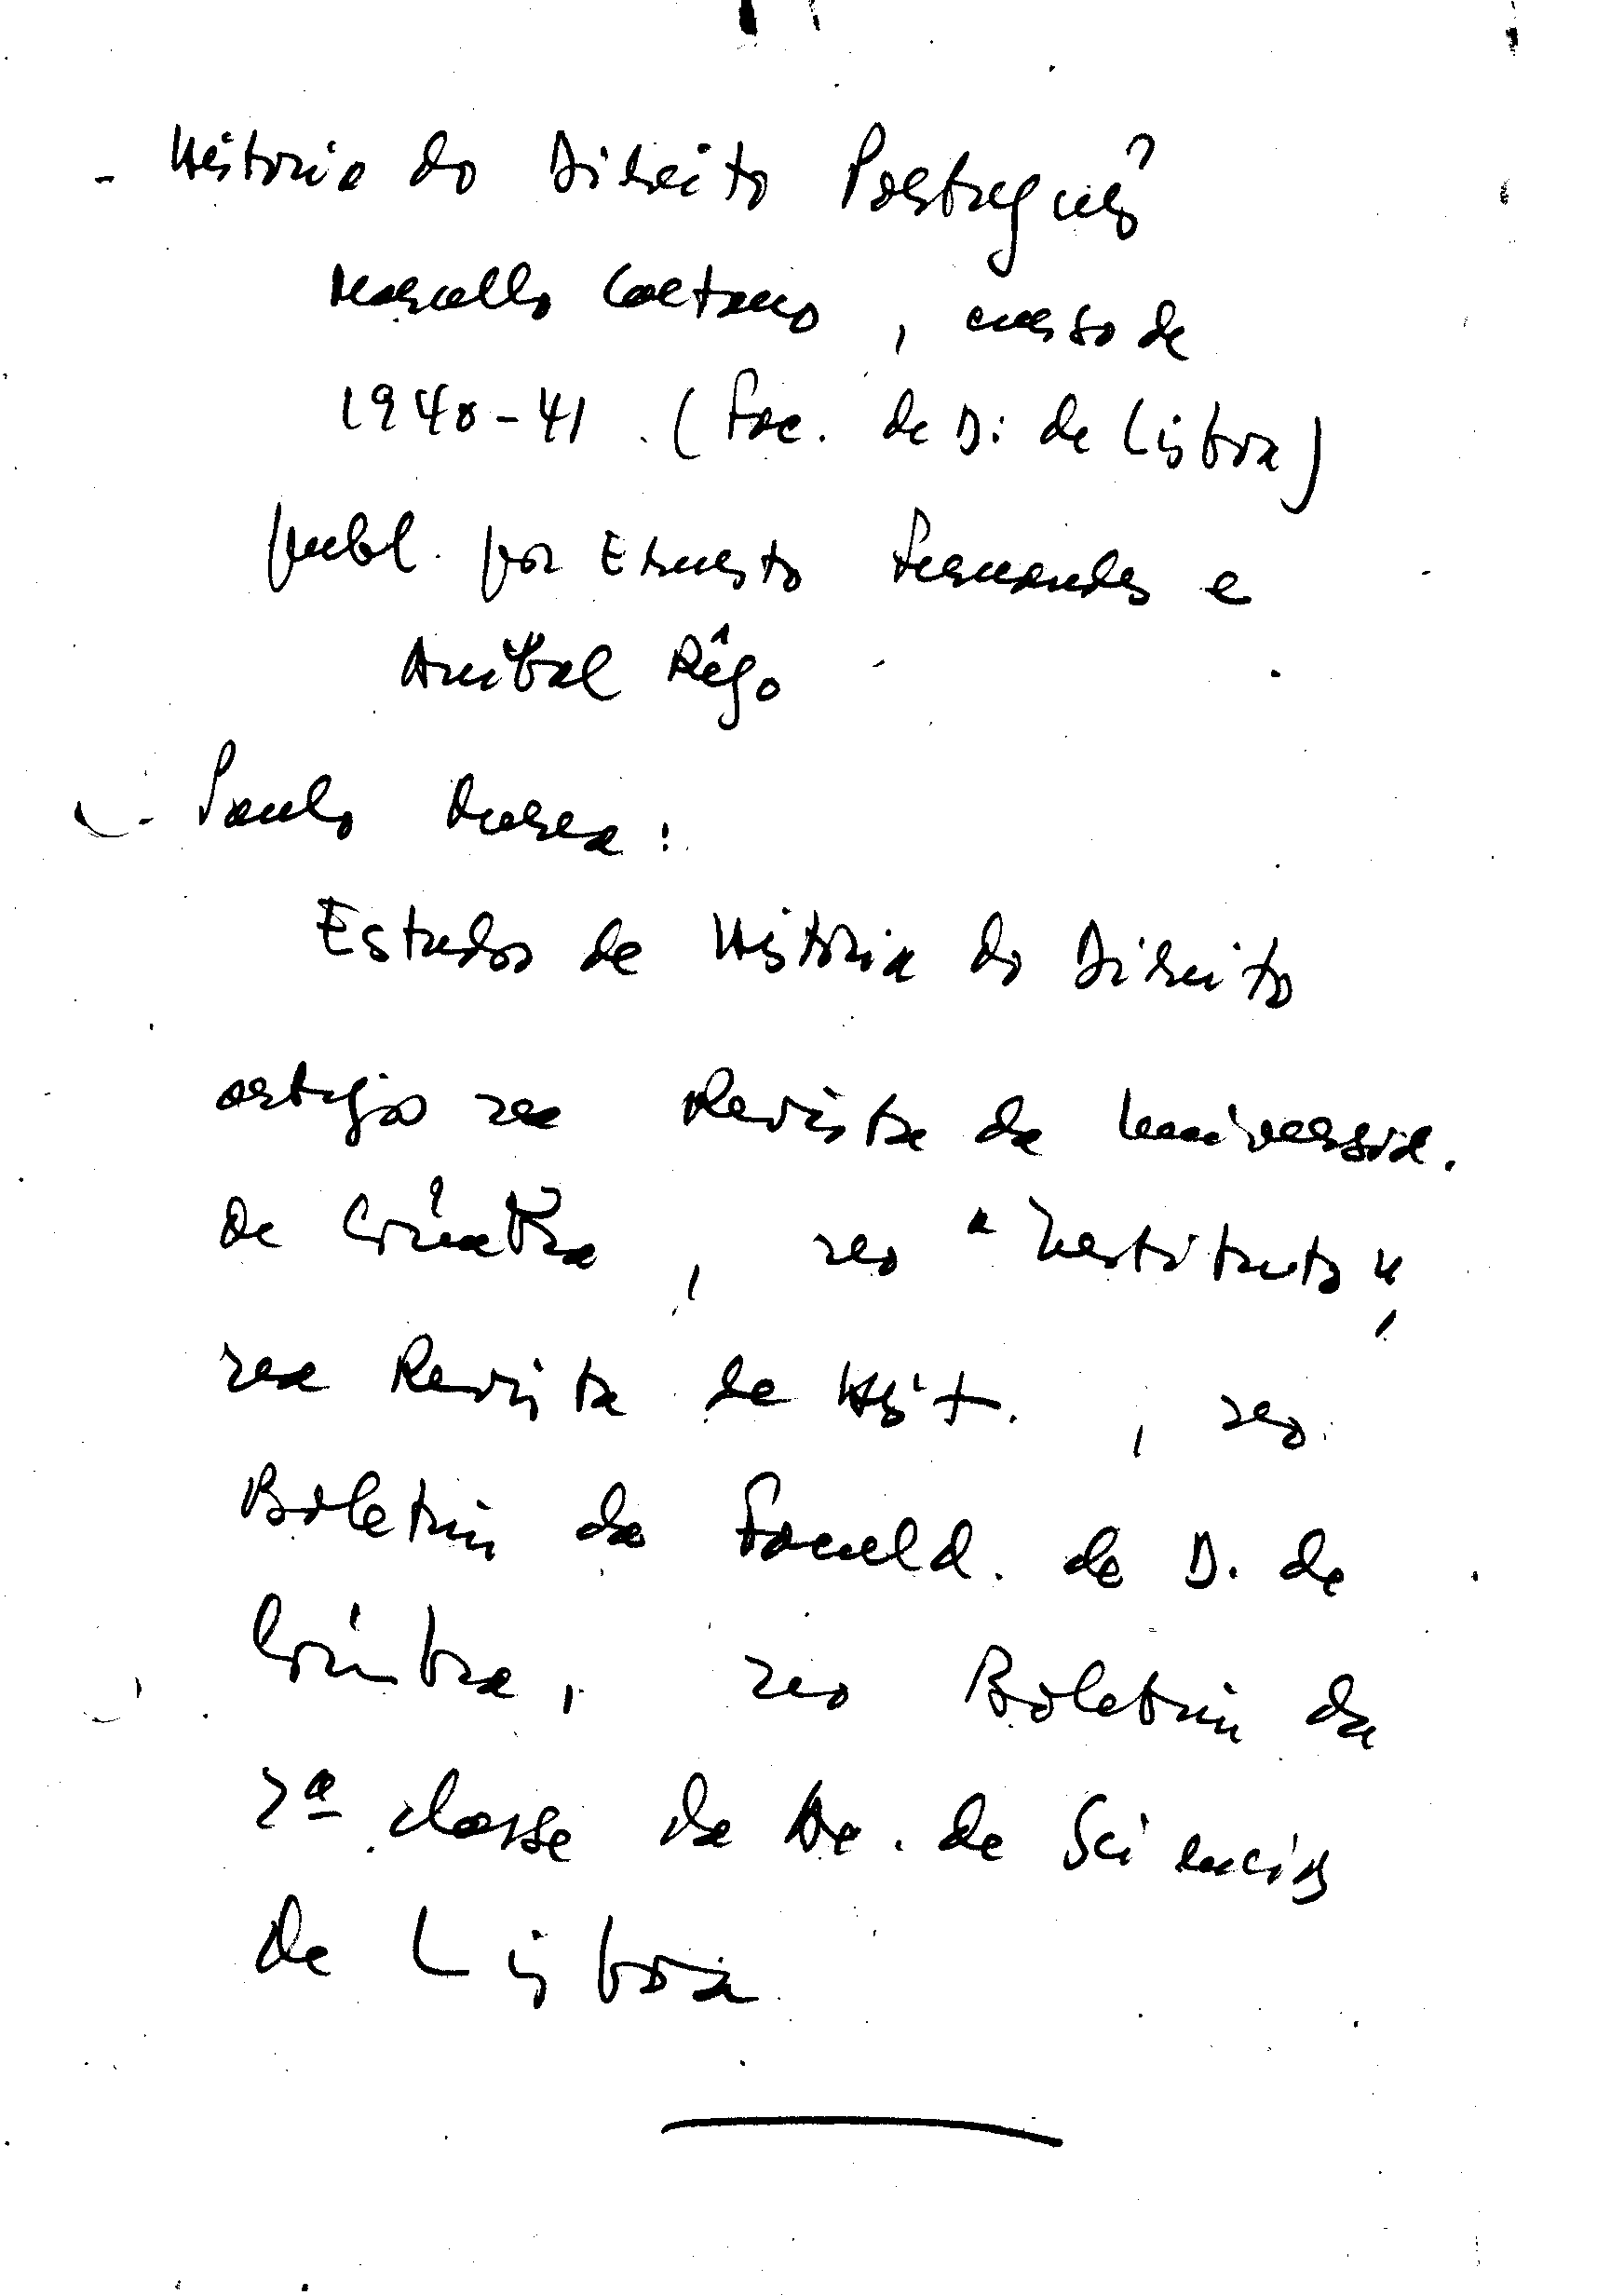 - Historia do Direito Português
Marcello Caetano, curso de
1940-41. (Fac. de D. de Lisboa)
publ. por Ernesto Fernandes e
Aníbal Rêgo
- Paulo Merea:
Estudos de Historia do Direito
artigos na Revista da Universid.
de Coimbra, no "Instituto",
na Revista de Hist., no
Boletim da Faculd. de D. de
Coimbra, no Boletim da
2ª classe da Ac. de Sciencias
de Lisboa